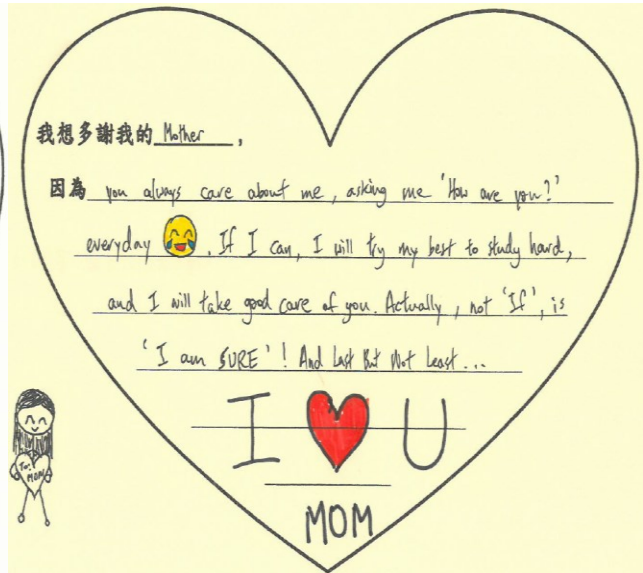 我想多謝我的 Mother ,
因為 you always care about me, asking me 'How are you?'
everyday 😂. If I can, I will try my best to study hard,
and I will take good care of you. Actually, not 'If', is
'I am SURE'! And Last But Not Least...
I ❤ U
MOM
To:
MOM